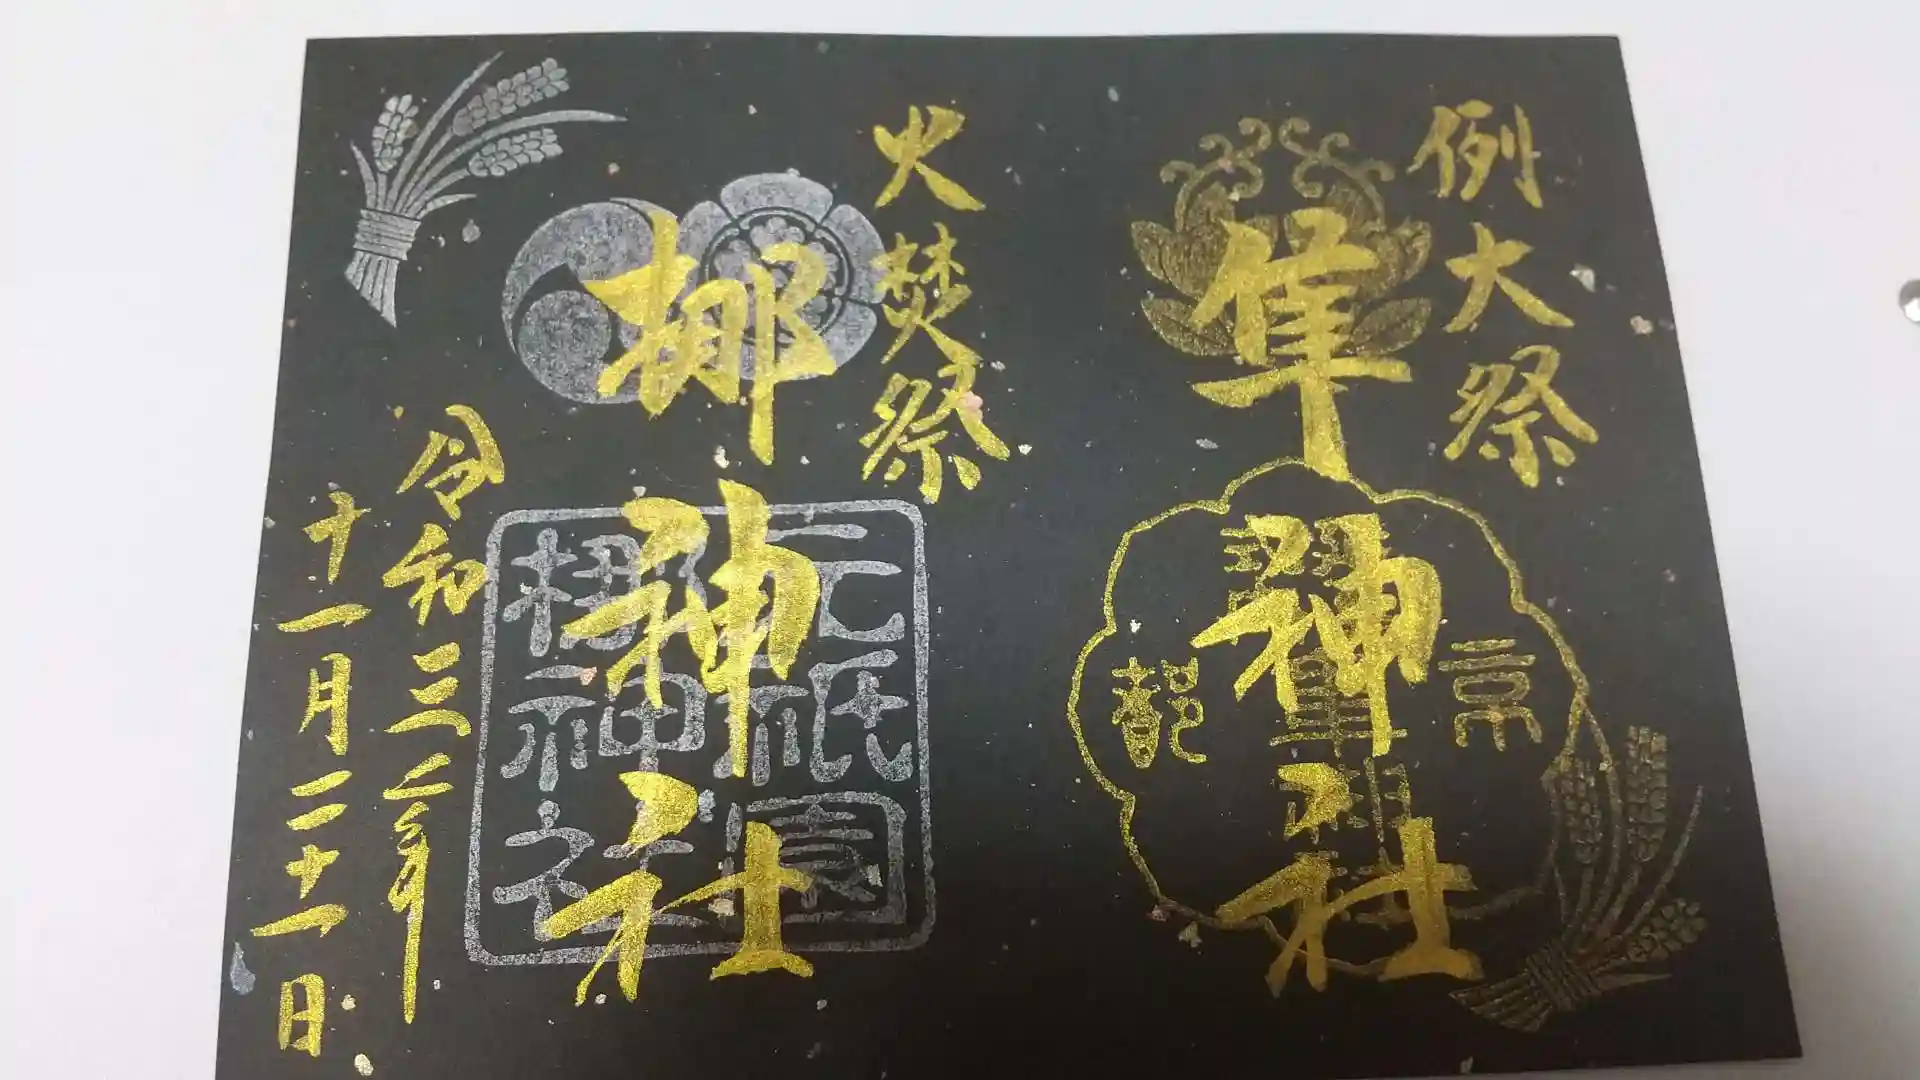 例大祭
隼神社
京
都
火焚祭
梛神社
元祇園
梛神社
令和三年
十一月二十一日